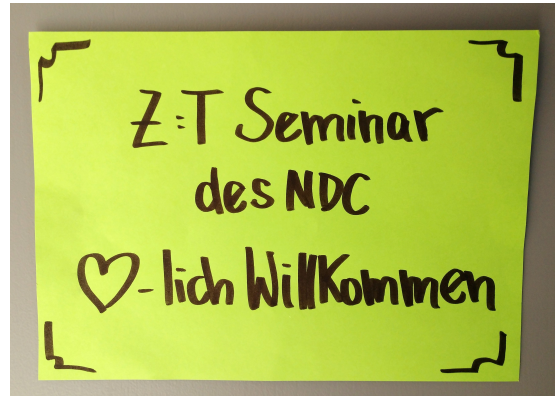 Z:T Seminar
des NDC
♡-lich Willkommen